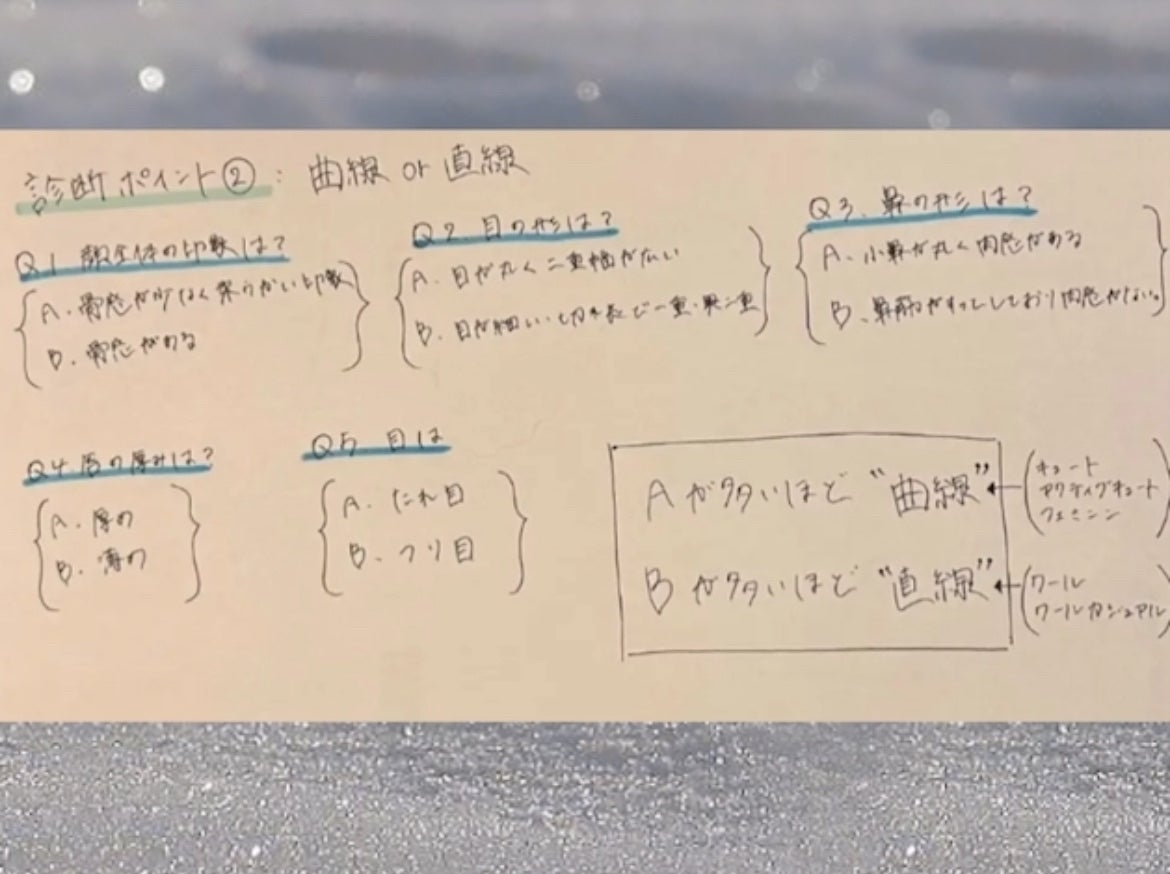 診断ポイント② : 曲線 or 直線
Q1. 顔全体の印象は?
A. 骨感が少なく柔らかい印象
B. 骨感がある
Q2. 目の形は?
A. 目が丸く二重幅が広い
B. 目が細い・切れ長で一重・奥二重
Q3. 鼻の形は?
A. 小鼻が丸く肉感がある
B. 鼻筋がすっとしており肉感がない。
Q4. 唇の厚みは?
A. 厚め
B. 薄め
Q5. 目は
A. たれ目
B. つり目
Aが多いほど "曲線" ← (キュート
アクティブキュート
フェミニン)
Bが多いほど "直線" ← (クール
クールカジュアル)